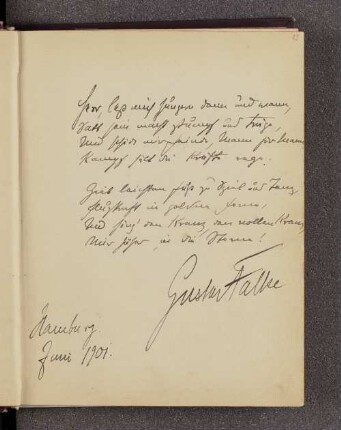 Herr, laß mich hungern dann und wann,
Satt sein macht stumpf und träge,
Und schick mir Feinde, Mann für Mann,
Kampf hält die Kräfte rege.
Gieb leichten Fuß zu Spiel und Tanz,
Flugkraft in goldne Ferne,
Und häng' den Kranz, den vollen Kranz,
Mir höher in die Sterne!
Gustav Falke
Hamburg.
Juni 1901.